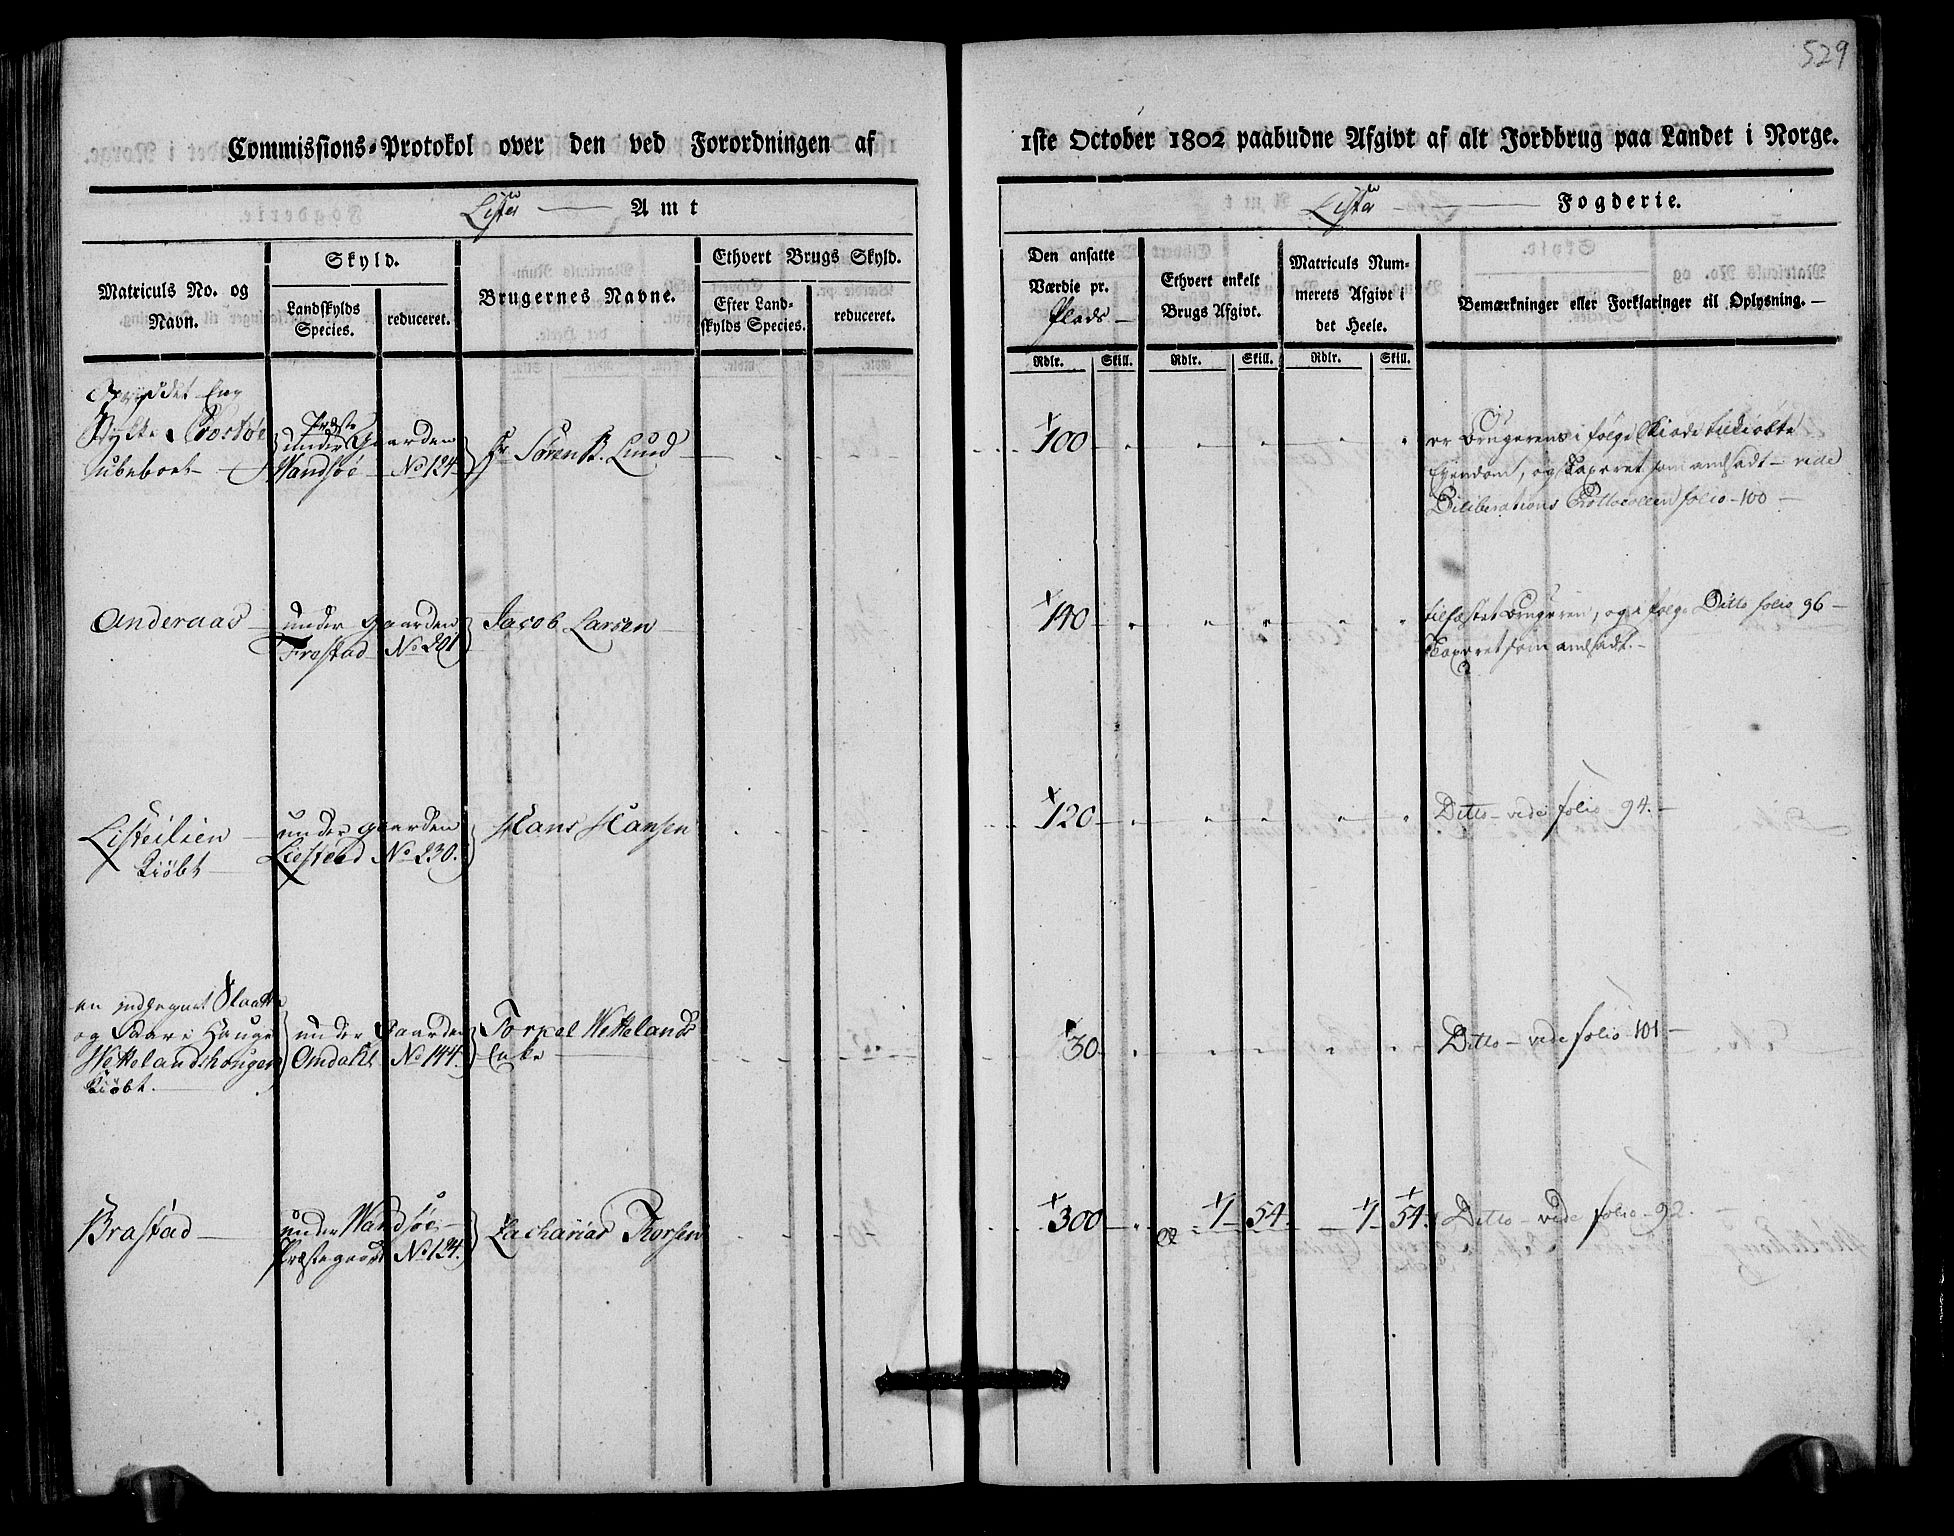 529
Commissions-Protokol over den ved Forordningen af
1ste October 1802 paabudne Afgivt af alt Jordbrug paa Landet i Norge.
Lister Amt
Lister Fogderie.
Matriculs No. og Navn.
Skyld.
Landskylds Species.
reduceret.
Brugernes Navne.
Ethvert Brugs Skyld.
Efter Landskylds Species.
reduceret.
Den ansatte Værdie pr. Plads
Ethvert enkelt Brugs Afgivt.
Matriculs Nummerets Afgivt i det Heele.
Bemærkninger eller Forklaringer til Oplysning.
Rdlr. Skill. Rdlr. Skill. Rdlr. Skill.
Eng
under Gaarden Sr Søren B. Lund 100
Wandsøe No 124
er Brugerens i følge Skiøde
Eiendom, og Taxeret som andsadt - vide
Deliberations Protocollen folio 100
Anderaas under Gaarden Jacob Larsen 140
Frøstad No 201
tilfæstet Brugeren, og i følge Ditto folio 96
Taxeret som andsadt.
Listeilien under Gaarden Hans Hansen 120 Ditto - vide folio 94.
kiøbt Liestøed No 230.
en indhegnet Slaatte
og Hauge under Gaarden Torkel Wettelands 30 Ditto - vide folio 101
Wettelandshougen Omdahl No 144. Enke
kiøbt.
Brastad under Wandsøe Zacharias Thorsen 300 1 54 1 54 Ditto - vide folio 92.
Præstegaard No 124.